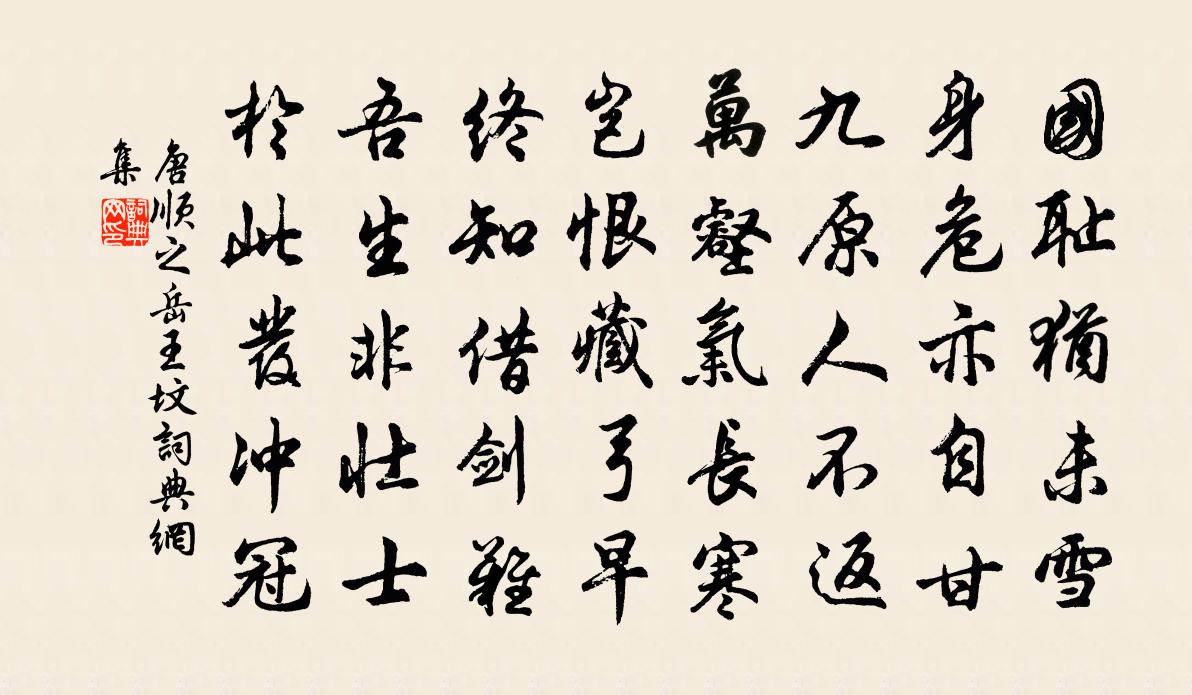 國耻猶未雪
身危亦自甘
九原人不返
萬壑氣長寒
豈恨藏弓早
終知借劍難
吾生非壯士
於此發冲冠
唐順之岳王坟詞典網
集
詞典
网印